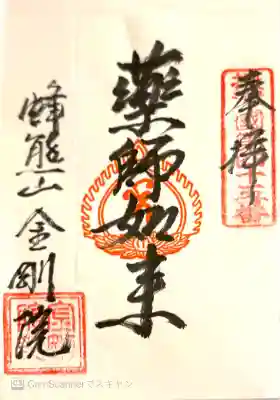 奉拝
薬師如来
蜂熊山金剛院
CamScannerでスキャン